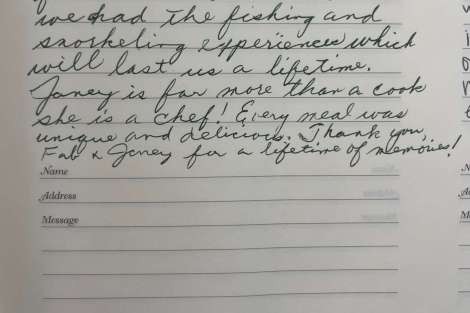 we had the fishing and
snorkeling experiences which
will last us a lifetime.
Janey is far more than a cook
she is a chef! Every meal was
unique and delicious. Thank you,
Fab & Janey for a lifetime of memories!
Name
Address
Message